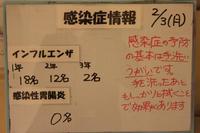 感染症情報
2/3(月)
インフルエンザ
1年 2年 3年
18名 12名 2名
感染性胃腸炎
0名
感染症の予防
の基本は手洗い
うがいです。
手を洗ったあと
もしっかり拭くこと
で効果があります